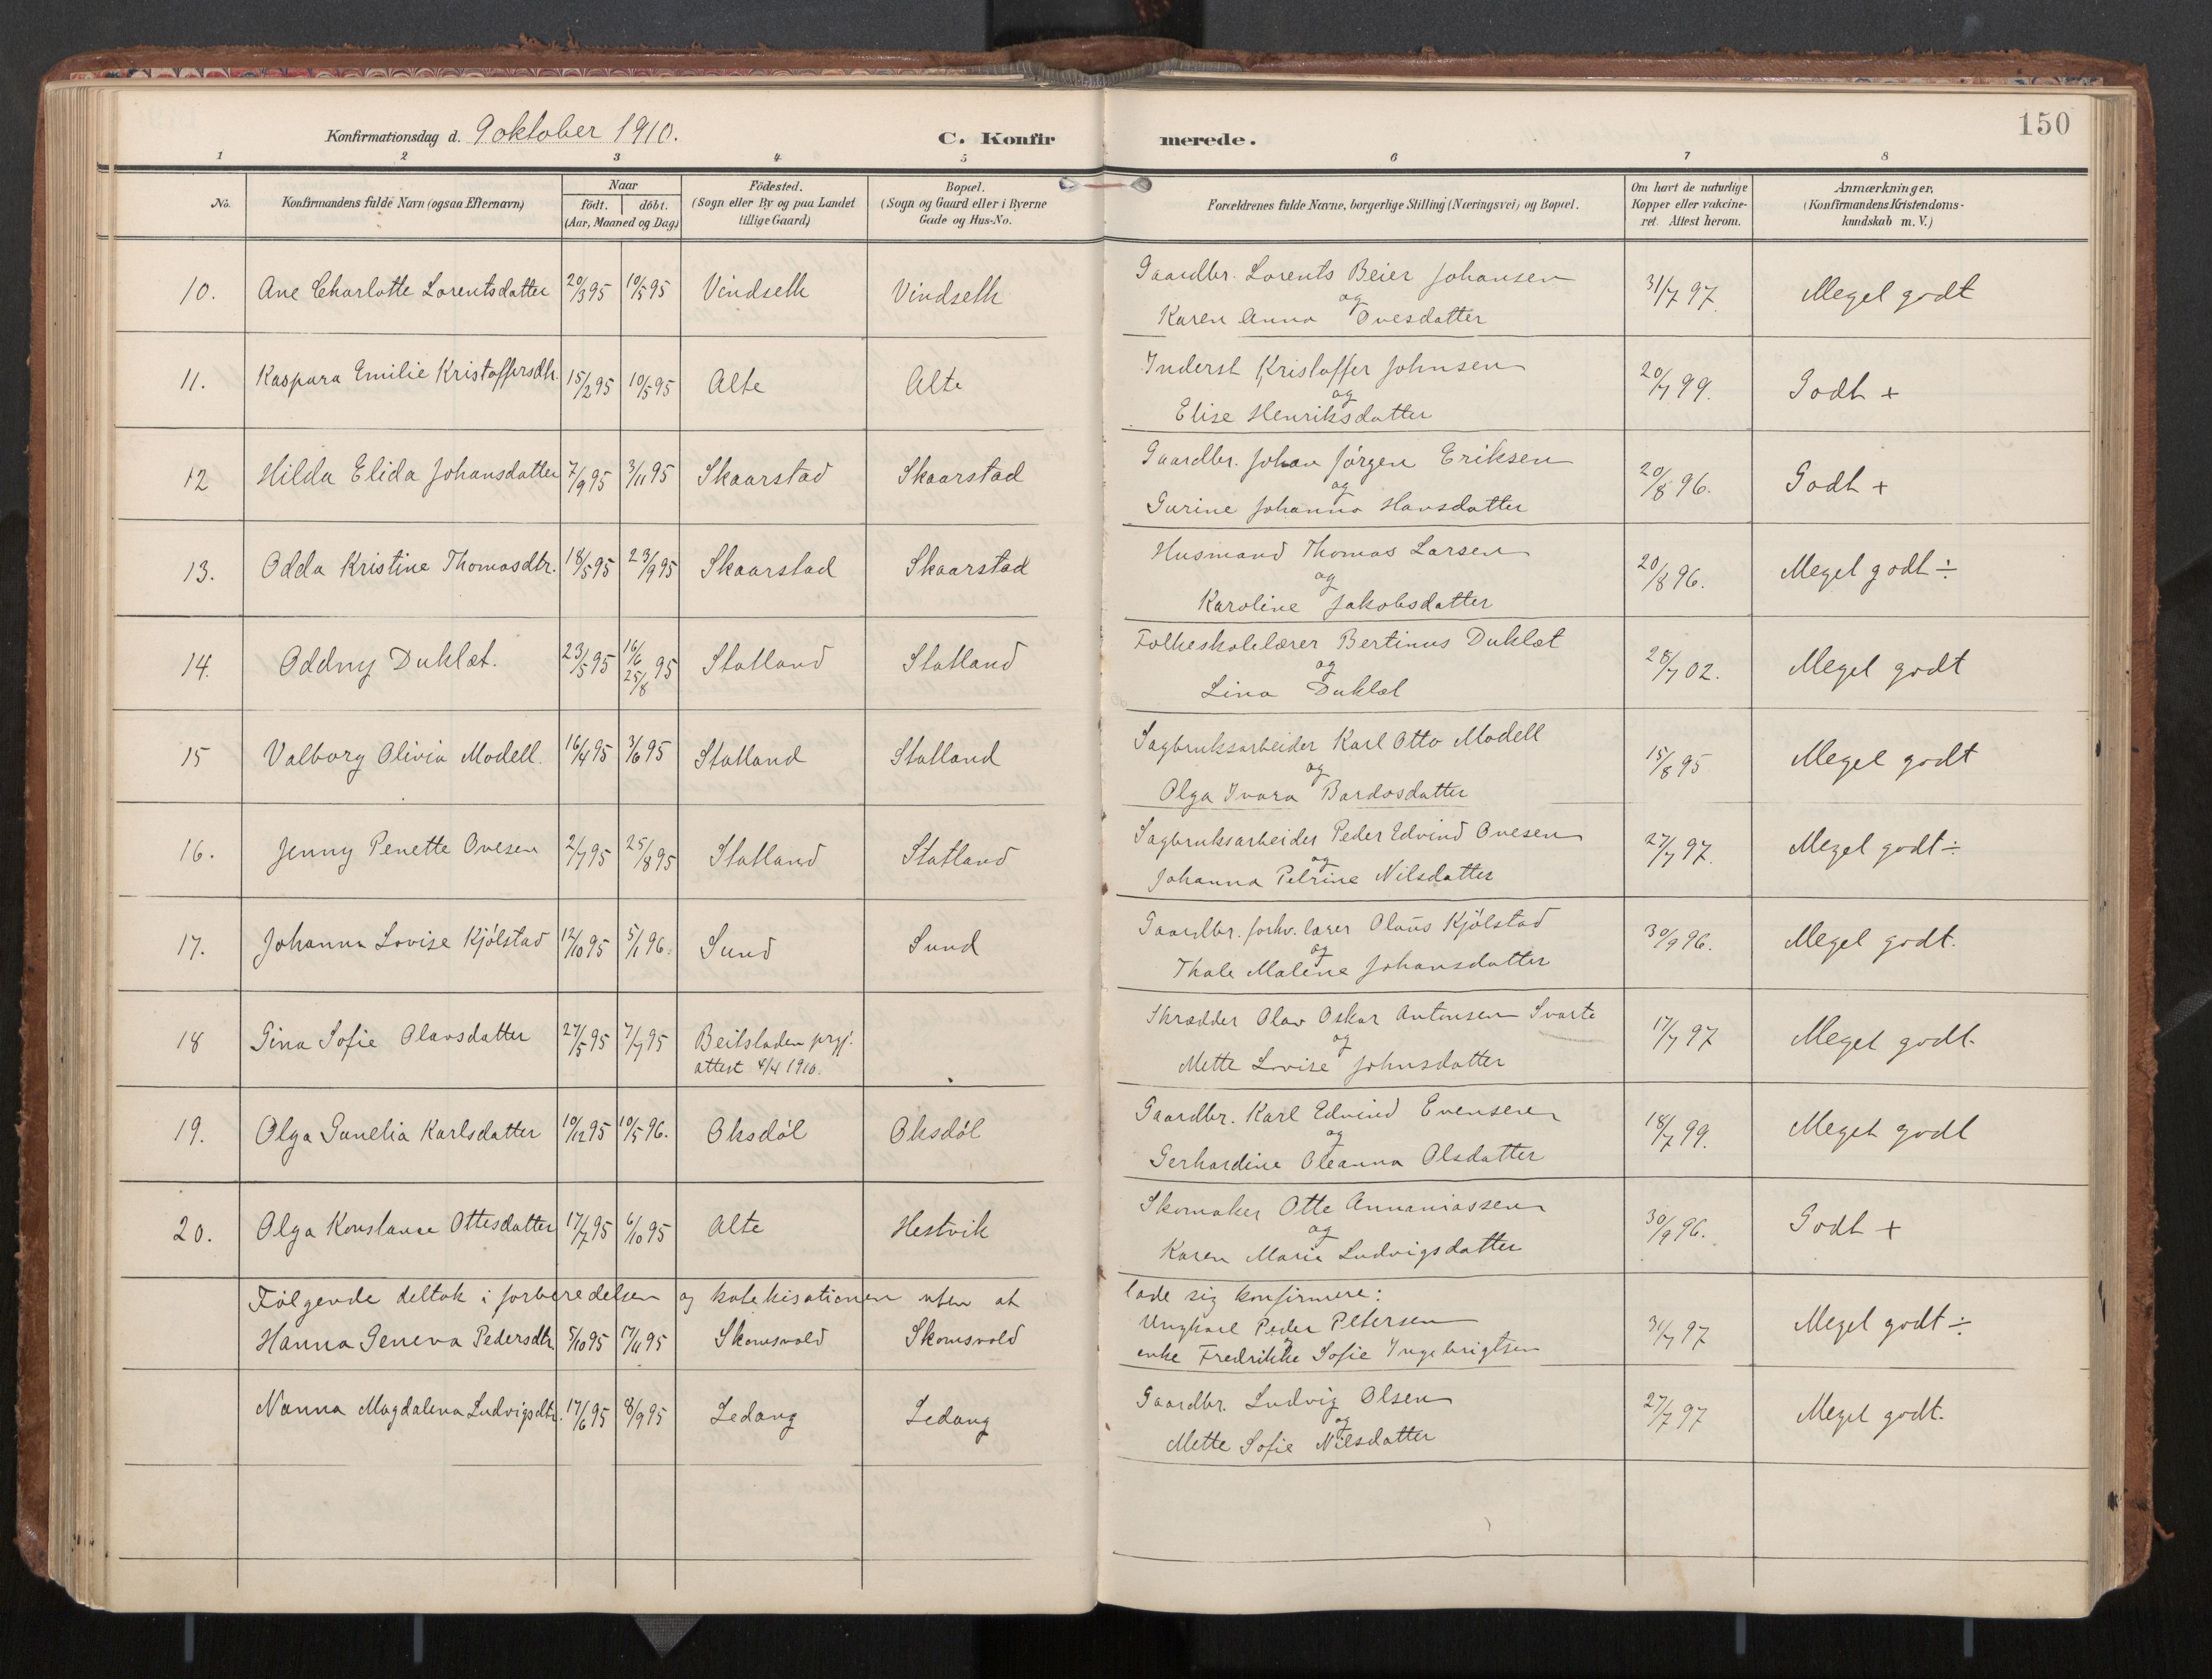 150
Konfirmationsdag d. 9 oktober 1910. C. Konfir merede.
1 2 3 4 5 6 7 8
No.
Konfirmandens fulde Navn (ogsaa Efternavn)
Naar
født. døbt.
(Aar, Maaned og Dag)
Födested.
(Sogn eller By og paa Landet
tillige Gaard)
Bopæl.
(Sogn og Gaard eller i Byerne
Gade og Hus-No.
Forældrenes fulde Navne, borgerlige Stilling (Næringsvei) og Bopæl.
Om havt de naturlige
Kopper eller vakcine-
ret. Attest herom.
Anmærkninger.
(Konfirmandens Kristendoms-
kundskab m. V.)
10. Ane Charlotte Lorentsdatter 20/3 95 10/5 95 Vindseth Vindseth Gaardbr. Lorents Beier Johansen 31/7 97. Meget godt
og
Karen Anna Ovesdatter
11. Kaspara Emilie Kristoffersdtr. 15/2 95 10/5 95 Alte Alte Inderst Kristoffer Johnsen 20/7 99. Godt +
og
Elise Henriksdatter
12 Hilda Elida Johansdatter 7/9 95 3/11 95 Skaarstad Skaarstad Gaardbr. Johan Jörgen Eriksen 20/8 96. Godt +
og
Gurine Johanna Hansdatter
13. Odda Kristine Thomasdtr. 18/5 95 23/9 95 Skaarstad Skaarstad Husmand Thomas Larsen 20/8 96. Meget godt ÷
og
Karoline Jakobsdatter
14. Oddny Duklæt. 23/5 95 16/6 25/8 95 Statland Statland Folkeskolelærer Bertinus Duklæt 28/7 02. Meget godt
og
Lina Duklæt
15 Valborg Olivia Modell. 16/4 95 3/6 95 Statland Statland Sagbruksarbeider Karl Otto Modell 15/8 95 Meget godt
og
Olga Ivara Bardosdatter
16. Jenny Penette Ovesen 2/7 95 25/8 95 Statland Statland Sagbruksarbeider Peder Edvind Ovesen 27/7 97. Meget godt ÷
og
Johanna Petrine Nilsdatter
17. Johanna Lovise Kjölstad 12/10 95 5/1 96. Sund Sund Gaardbr. forhv. lærer Olaus Kjölstad 30/9 96. Meget godt.
og
Thale Malene Johansdatter
18 Gina Sofie Olavsdatter 27/5 95 7/7 95 Beitstaden prgj. Skrædder Olav Oskar Antonsen Svarte 17/7 97 Meget godt.
attest 4/4 1910. og
Mette Lovise Johnsdatter
19. Olga Gunelia Karlsdatter 10/12 95 10/5 96. Oksdöl Oksdöl Gaardbr. Karl Edvind Evensen 18/7 99. Meget godt
og
Gerhardine Oleanna Olsdatter
20. Olga Konstanse Ottesdatter 17/7 95 6/10 95 Alte Hestvik Skomaker Otte Annaniassen 30/9 96. Godt +
og
Karen Marie Ludvigsdatter
Følgende deltok i forberedelsen og katekisationen uten at lade sig konfirmere:
Hanna Geneva Pedersdtr 5/10 95 17/11 95 Skomsvold Skomsvold Ungkarl Peder Petersen 31/7 97 Meget godt ÷
og
enke Fredrikke Sofie Ingebrigtsen
Nanna Magdalena Ludvigsdtr. 17/6 95 8/9 95 Ledang Ledang Gaardbr. Ludvig Olsen 27/7 97 Meget godt.
og
Mette Sofie Nilsdatter